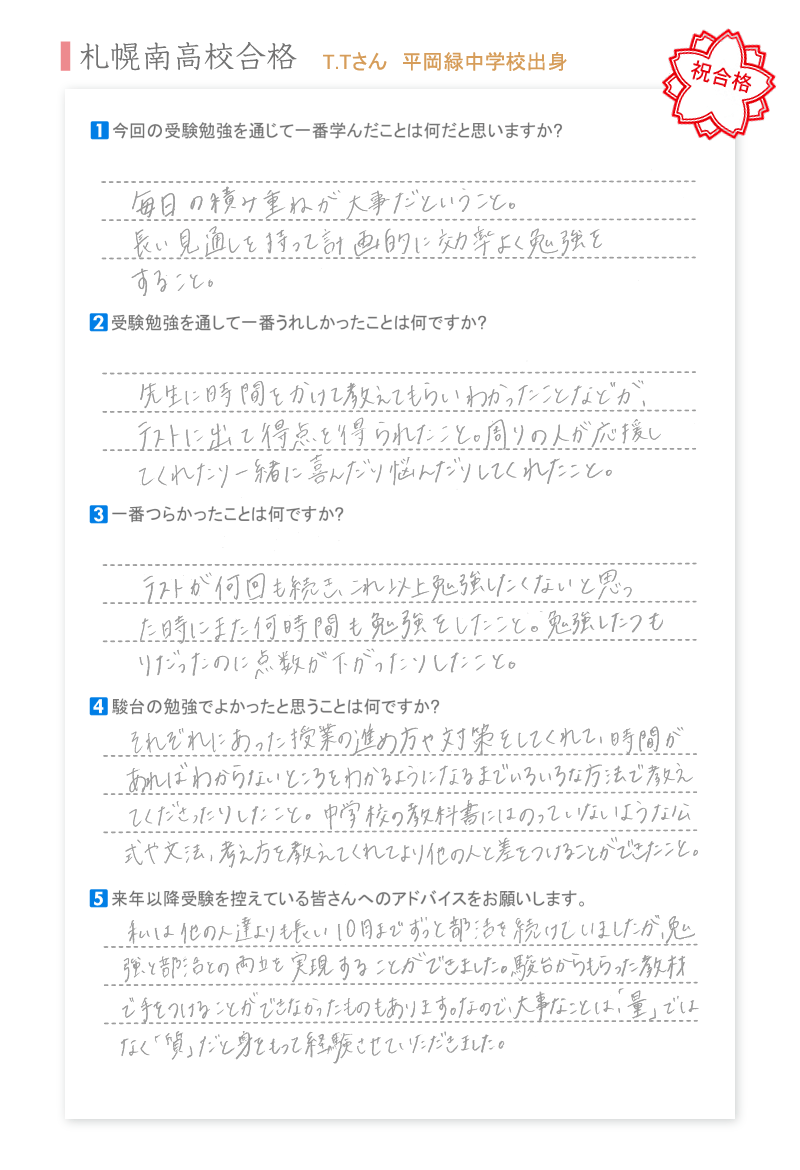 札幌南高校合格 T.Tさん 平岡緑中学校出身
祝合格
1 今回の受験勉強を通じて一番学んだことは何だと思いますか?
毎日の積み重ねが大事だということ。
長い見通しを持って計画的に効率よく勉強を
すること。
2 受験勉強を通して一番うれしかったことは何ですか?
先生に時間をかけて教えてもらいわかったことなどが、
テストに出て得点を得られたこと。周りの人が応援し
てくれたり一緒に喜んだり悩んだりしてくれたこと。
3 一番つらかったことは何ですか?
テストが何回も続き、これ以上勉強したくないと思っ
た時にまた何時間も勉強をしたこと。勉強したつも
りだったのに点数が下がったりしたこと。
4 駿台の勉強でよかったと思うことは何ですか?
それぞれにあった授業の進め方や対策をしてくれて、時間が
あればわからないところをわかるようになるまでいろいろな方法で教え
てくださったりしたこと。中学校の教科書にはのっていないような公
式や文法、考え方を教えてくれてより他の人と差をつけることができたこと。
5 来年以降受験を控えている皆さんへのアドバイスをお願いします。
私は他の人達よりも長い10月までずっと部活を続けていましたが、勉
強と部活との両立を実現することができました。駿台からもらった教材
で手をつけることができなかったものもあります。なので、大事なことは、「量」では
なく「質」だと身をもって経験させていただきました。